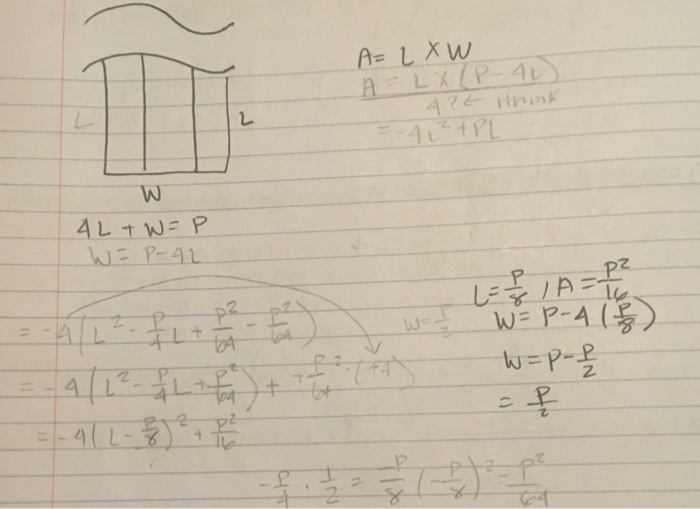 A = L X W
A = L X (P - 4L)
4? ← I think
= -4L² + PL
L L
W
4L + W = P
W = P - 4L
= -4(L² - P/4 L + P²/64 - P²/64)
= -4(L² - P/4 L + P²/64) + + P²/64 · (+4)
= -4(L - P/8)² + P²/16
W = P/2
L = P/8 , A = P²/16
W = P - 4(P/8)
W = P - P/2
= P/2
-P/4 · 1/2 = -P/8 (-P/8)² = P²/64